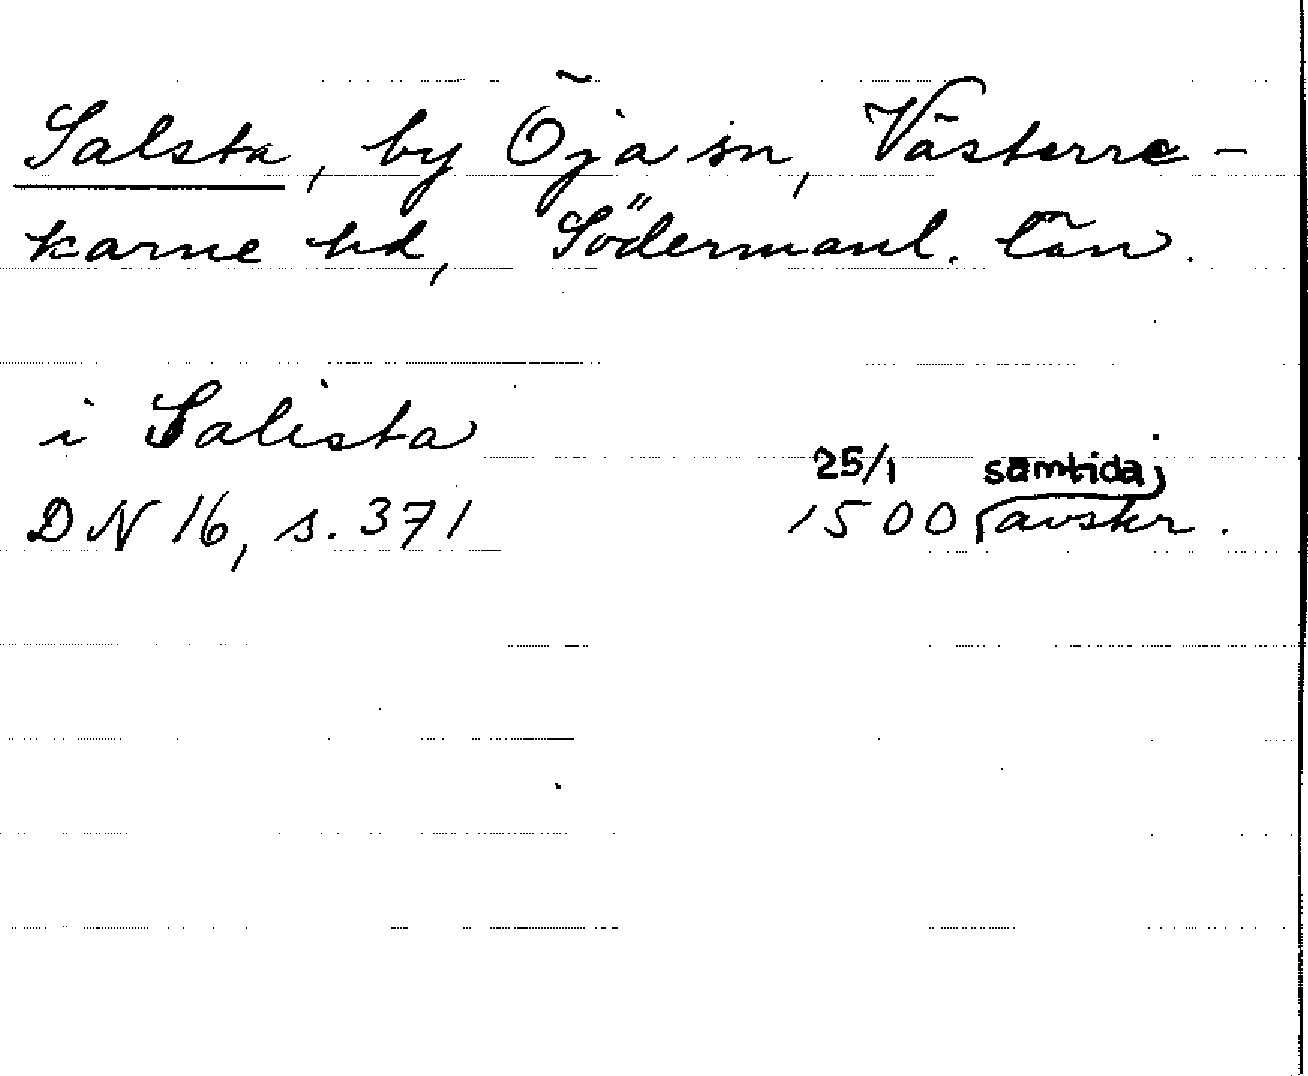 Salsta, by Öja sn, Västerre-
karne hd, Södermanl. län.
i Salista
25/1 samtida
DN 16, s. 371 1500 avskr.